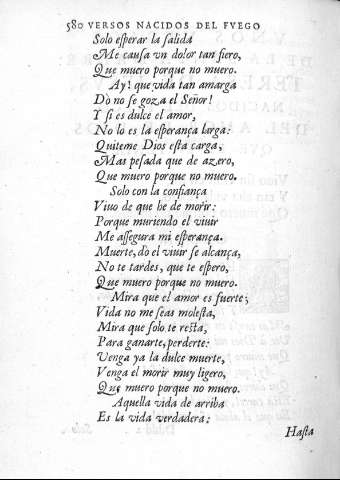 580 VERSOS NACIDOS DEL FVEGO
Solo eſperar la ſalida
Me cauſa vn dolor tan fiero,
Que muero porque no muero.
Ay! que vida tan amarga
Dò no ſe goza el Señor!
Y ſi es dulce el amor,
No lo es la eſperança larga:
Quiteme Dios eſta carga,
Mas peſada que de azero,
Que muero porque no muero.
Solo con la confiança
Viuo de que he de morir:
Porque muriendo el viuir
Me aſſegura mi eſperança.
Muerte, dò el viuir ſe alcança,
No te tardes, que te eſpero,
Que muero porque no muero.
Mira que el amor es fuerte;
Vida no me ſeas moleſta,
Mira que ſolo te reſta,
Para ganarte, perderte:
Venga ya la dulce muerte,
Venga el morir muy ligero,
Que muero porque no muero.
Aquella vida de arriba
Es la vida verdadera:
Haſta